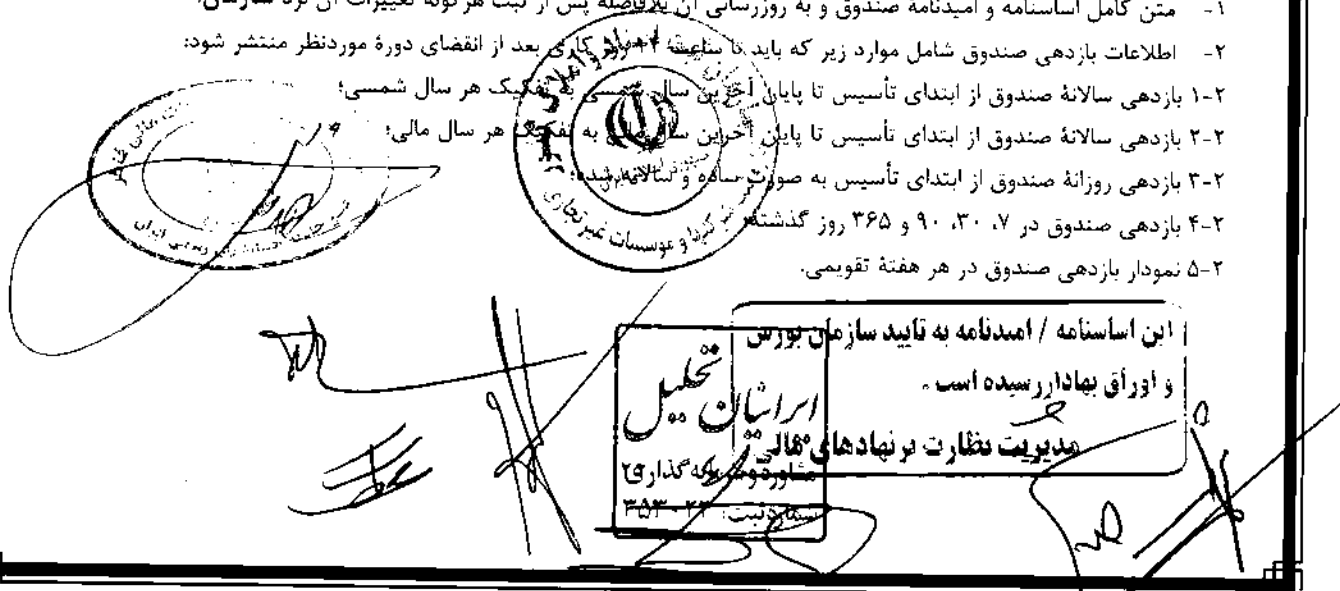 ۱- متن کامل اساسنامه و امیدنامه صندوق و به روزرسانی آن بلافاصله پس از ثبت هرگونه تغییرات آن نزد سازمان؛
۲- اطلاعات بازدهی صندوق شامل موارد زیر که باید تا ساعت کاری بعد از انقضای دورهٔ موردنظر منتشر شود:
۲-۱ بازدهی سالانهٔ صندوق از ابتدای تأسیس تا پایان آخرین سال شمسی به تفکیک هر سال شمسی؛
۲-۲ بازدهی سالانهٔ صندوق از ابتدای تأسیس تا پایان آخرین سال مالی به تفکیک هر سال مالی؛
۲-۳ بازدهی روزانهٔ صندوق از ابتدای تأسیس به صورت ساده و سالانه شده؛
۲-۴ بازدهی صندوق در ۷، ۳۰، ۹۰ و ۳۶۵ روز گذشته؛
۲-۵ نمودار بازدهی صندوق در هر هفتهٔ تقویمی.
و موسسات غیرتجاری
این اساسنامه / امیدنامه به تایید سازمان بورس
و اوراق بهادار رسیده است .
مدیریت نظارت بر نهادهای مالی
ایرانیان تحلیل
شماره ثبت: